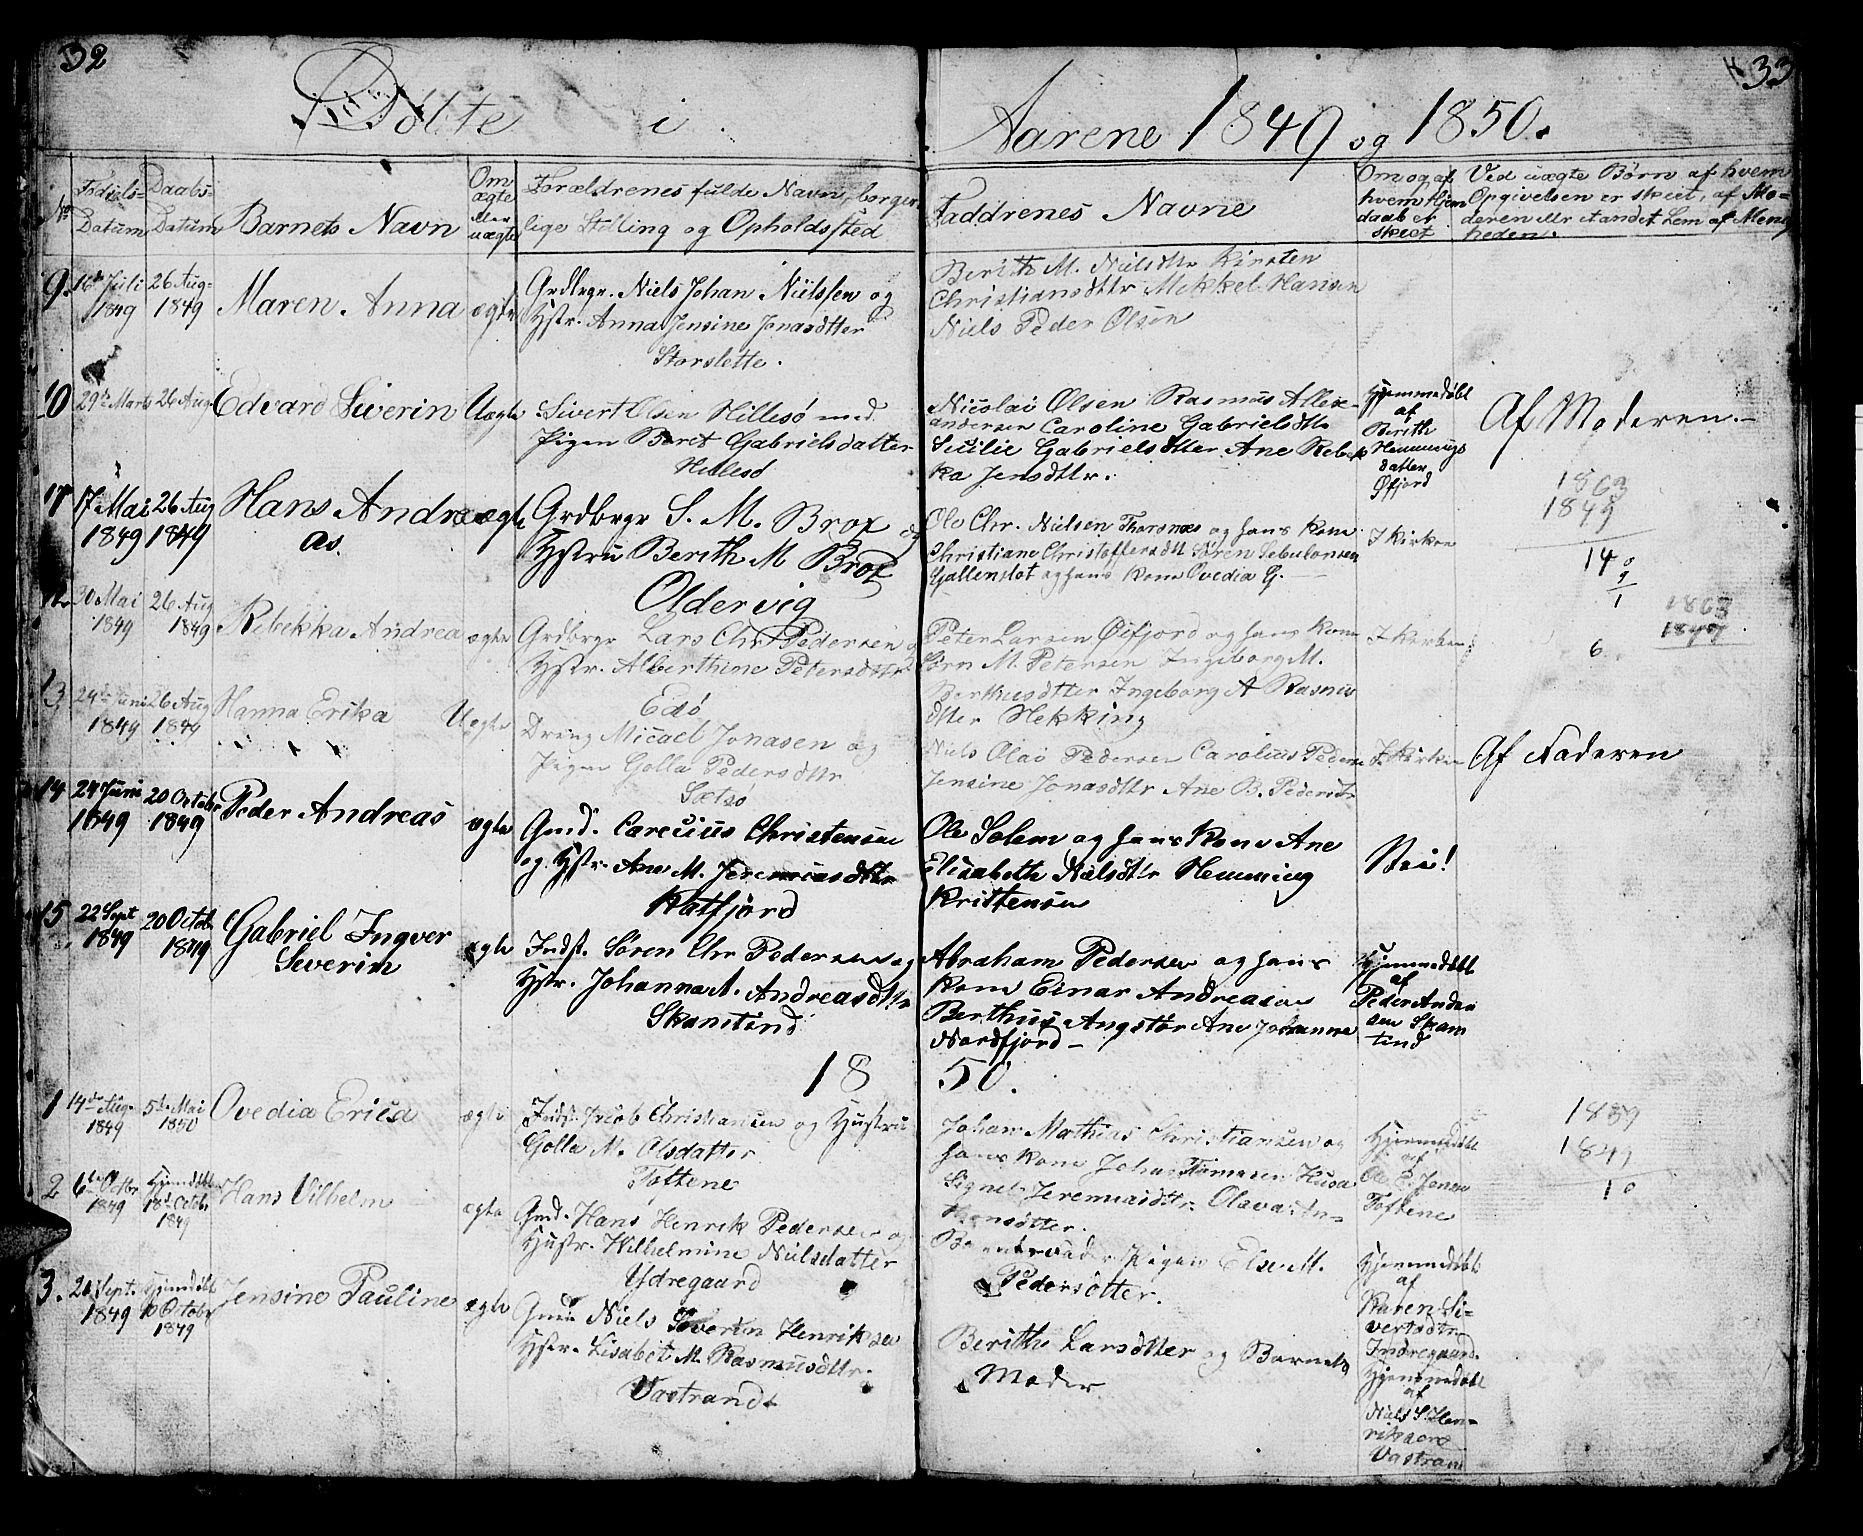 32
Døbte i
Aarene 1849 og 1850.
33
No
Fødsels-
Datum
Daabs-
Datum
Barnets Navn
Om
ægte
eller
uægte
Forældrenes fulde Navn, borger
lige Stilling og Opholdssted
Faddrenes Navne
Om og af
hvem Hjem
daab er
skeet
Ved uægte Børn af hvem
Opgivelsen er skeet, af Mo-
deren ellr et andet Lem af Menig
heden.
9. 16de Juli 26 Aug-
1849 1849
Maren Anna ægte
Grdbrgr. Niels Johan Nielssen og
Hstr. Anna Jensine Jonasdtter
Storslette.
Berith M. Nielsdttr Kirsten
Christiansdttr Mekkel Hansen
Niels Peder Olsen
10 29de Marts 26 Aug Edvard Siverin Uægte
Sivert Olsen Hillesø med
Pigen Beret Gabrielsdatter
Hillesø
Nicolai Olsen Rasmus Allex-
andersen Caroline Gabrielsdttr
Secilie Gabrielsdtter Ane Rebek
ka Jensdttr.
Hjemmedøbt
af
Berith
Hemmings
datter
Øfjord
Af Moderen.-
1863
1849
14
11 17 Mai 26 Aug
1849 1849
Hans Andre
as. ægte
Grdbrgr S. M. Brox og
Hstru Berith M Brox
Oldervig
Ole Chr. Nielsen Thorsnæs og hans Kone
Christiane Christoffersdtt Søren Sebulonsen
Gallenslot og hans Kone Ovedia G.
I Kirken
12 30 Mai 26 Aug
1849 1849
Rebekka Andrea ægte
Grdbrgr Lars Chr Pedersen og
Hstr. Alberthine Petersdttr
Edø
Peter Larsen Øifjord og hans Kone
Jørn M. Petersen Ingeborg M.
Berthusdtter Ingeborg A Rasmus
dtter Hekking
I Kirken
1863
1849
6
13 24de Juni 26 Aug
1849 1849
Hanna Erika Uægte
Dreng Micael Jonasen og
Pigen Golla Pedersdttr
Sætsø
Niels Olai Pedersen Carolius Peders
Jensine Jonasdttr Ane B. Pedersdtr
I Kirken
Af Faderen
14 24 Juni 20 Octobr
1849 1849
Peder Andreas ægte
Gmd. Carelius Christensen
og Hstr. Ane M. Jeremiasdttr
Katfjord
Ole Solem og hans Kone Ane
Elisabeth Nielsdttr Hemming
Kristensen
Nei!
15 22 Sept 20 Octobr
1849 1849
Gabriel Ingver
Severin ægte
Indst. Søren Chr Pedersen og
Hstr. Johanna A. Andreasdttr
Skamtind
Abraham Pedersen og hans
Kone Einar Andreasen
Berthus Angstør Ane Johanna
Nordfjord-
Hjemmedøbt
af
Peder Andre
sen Skam
tind
1850.
1 14de Aug. 5te Mai
1849 1850
Ovedia Erica ægte
Indst. Jacob Christiansen og Hustru
Golla M. Olsdatter
Toftene
Johan Mathias Christiansen og
hans Kone Johan Tomasen Husa
Signel Jeremiasdttr Olava An-
Hjemmedøbt
af
Ole E. Jensen
Toftene
1859
1849
10
2 6te Octbr Hjemdøbt
1849 18de Octobr
1849
Hans Vilhelm ægte
Gmd. Hans Henrik Pedersen og
Hustr. Wilhelmine Nielsdatter
Ydregaard
Barnets Fader Pigen Else M.
Pedersdtter.
Hjemmedøbt
af
Karen Si-
vertsdtr.
Indregaard.
3. 26 Sept. Hjemdøbt
1849 10 Octobr
1849
Jensine Pauline ægte
Gmd. Niels Severin Henriksen
Hstr. Lisabet M. Rasmusdttr.
Vastrand
Berith Larsdtter og Barnets
Moder
Hjemmedøbt
af
Niels S. Hen-
riksen
Vastrand